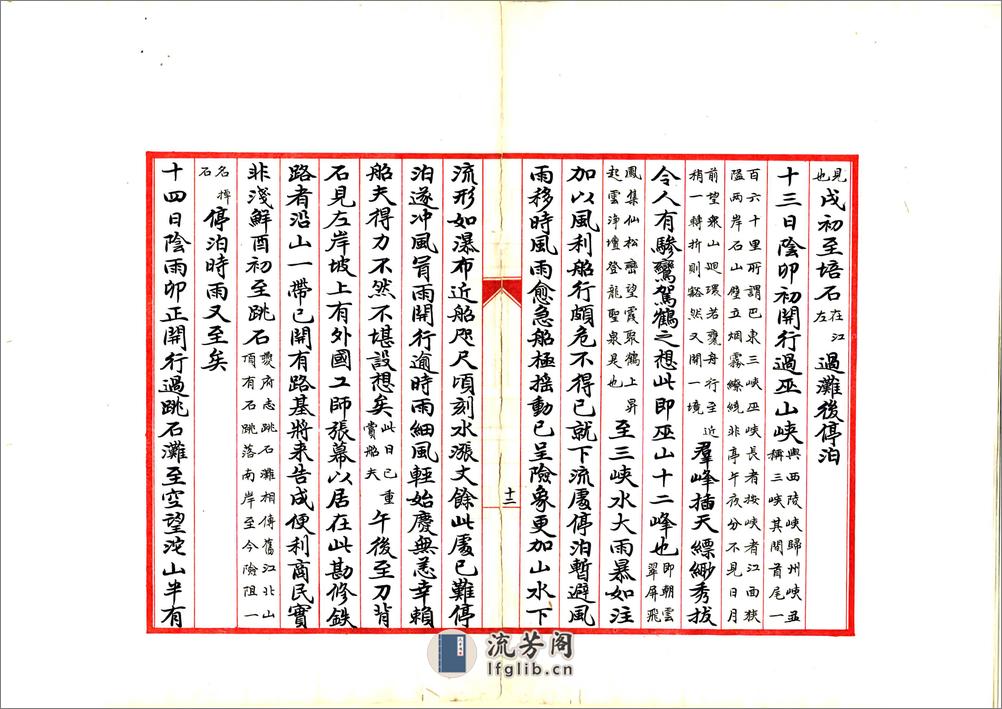 見也戌初至培石在江左過灘後停泊
十三日陰卯初開行過巫山峽與西陵峽歸州峽並稱三峽其間首尾一
百六十里所謂巴東三峽巫峽長者按峽者江面狹隘兩岸石山壁立烟霧繚繞非亭午夜分不見日月
前望衆山迴環若甕舟行至近稍一轉折則豁然又開一境羣峰插天縹緲秀拔
令人有驂鸞駕鶴之想此即巫山十二峰也即朝雲翠屏飛
鳳集仙松巒望霞聚鶴上昇起雲淨壇登龍聖泉是也至三峽水大雨暴如注
加以風利船行頗危不得已就下流處停泊暫避風
雨移時風雨愈急船極摇動已呈險象更加山水下
十三
流形如瀑布近船咫尺頃刻水漲丈餘此處已難停
泊遂冲風冐雨開行逾時雨細風輕始慶無恙幸賴
船夫得力不然不堪設想矣此日已重賞船夫午後至刀背
石見左岸坡上有外國工師張幕以居在此勘修鉄
路者沿山一帶已開有路基將来告成便利商民實
非淺鮮酉初至跳石夔府志跳石灘相傳舊江北山頂有石跳落南岸至今險阻一
名擇石停泊時雨又至矣
十四日陰雨卯正開行過跳石灘至空望沱山半有
流芳阁
lfglib.cn